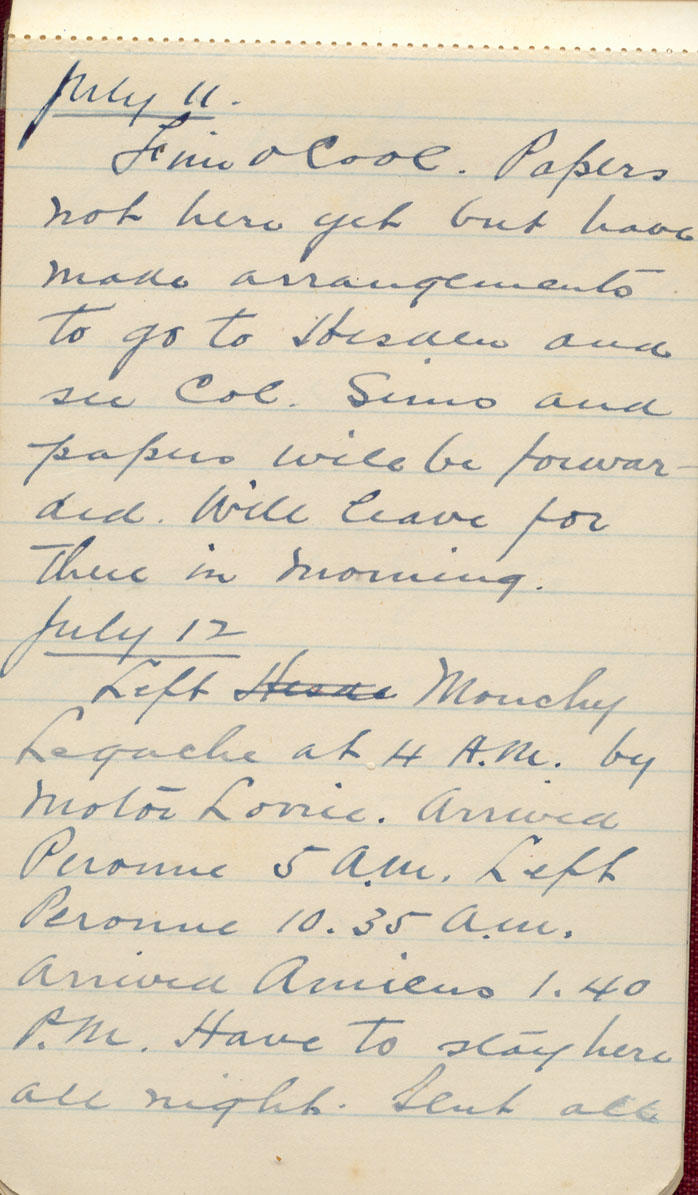 July 11.
Fine & Cool. Papers
not here yet but have
made arrangements
to go to Hesden and
see Col. Sims and
papers will be forwar-
ded. Will leave for
there in morning.
July 12
Left Hesde Monchy
Legache at 4 A.M. by
Motor Lorrie. Arrived
Peronne 5 A.M. Left
Peronne 10.35 A.M.
Arrived Amiens 1.40
P.M. Have to stay here
all night. Sent all